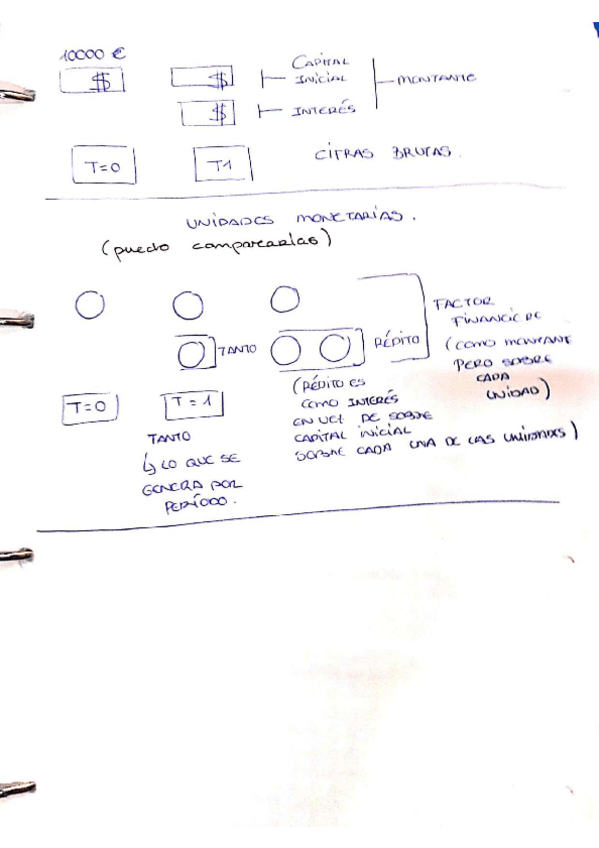 10000 €
$ $ CAPITAL INICIAL MONTANTE
$ INTERÉS
T=0 T1 CIFRAS BRUTAS.
UNIDADES MONETARIAS.
(puedo compararlas)
TANTO RÉDITO FACTOR
FINANCIERO
(COMO MONTANTE
PERO SOBRE
CADA
UNIDAD)
T=0 T=1
(RÉDITO ES
COMO INTERÉS
EN VEZ DE SOBRE
CAPITAL INICIAL
SOBRE CADA UNA DE LAS UNIDADES)
TANTO
↳ LO QUE SE
GENERA POR
PERÍODO.